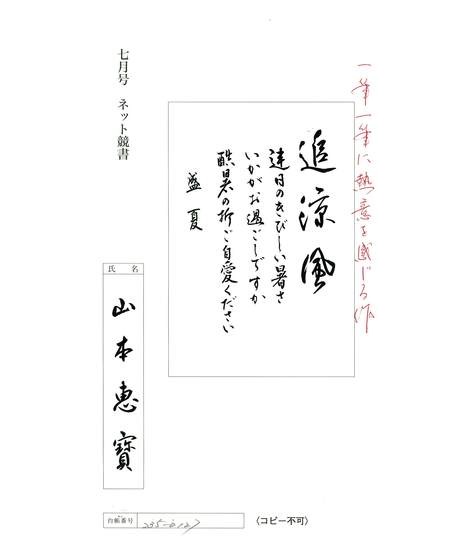 一筆一筆に熱意を感じる作
追涼風
連日のきびしい暑さ
いかがお過ごしですか
酷暑の折ご自愛ください
盛夏
七月号 ネット競書
氏名
山本恵寶
台帳番号
〈コピー不可〉